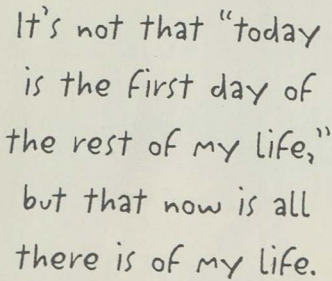 It's not that "today
is the first day of
the rest of my life,"
but that now is all
there is of my life.